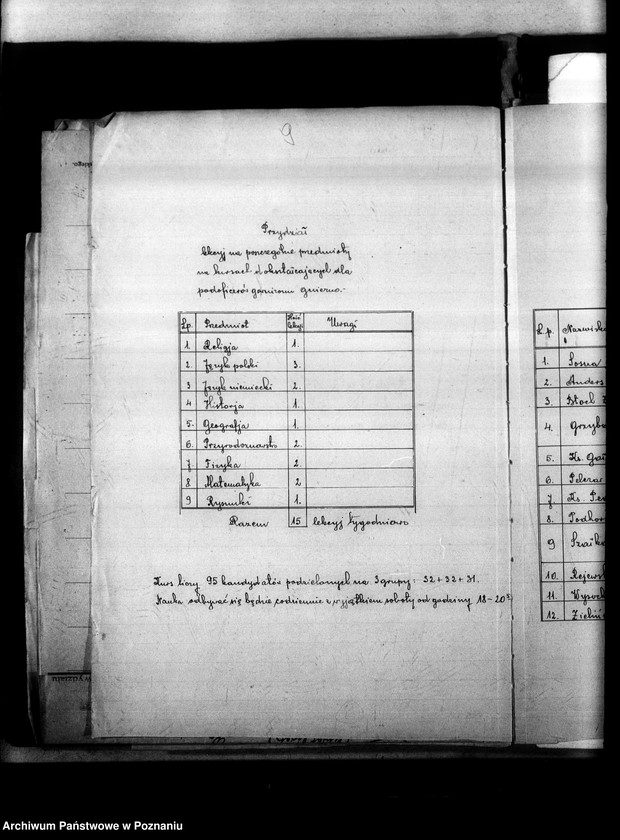 9
Przydział
lekcyj na poszczególne przedmioty
na kursach dokształcających dla
podoficerów garnizonu Gniezno.
Lp. Przedmiot Ilość lekcji Uwagi
1. Religja 1.
2. Język polski 3.
3 Język niemiecki 2.
4 Historja 1.
5. Geografja 1.
6. Przyrodoznawstwo 2.
7. Fizyka 2.
8 Matematyka 2
9 Rysunki 1.
Razem 15 lekcyj tygodniowo
Kurs liczy 95 kandydatów podzielonych na 3 grupy: 32+32+31.
Nauka odbywać się będzie codziennie z wyjątkiem soboty od godziny 18-20
L.p. Nazwisko
1. Sosna
2. Anders
3. Btoch
4. Grzyb
5. Ks. Ga
6. Pelczar
7. Ks.
8. Podkor
9
10. Rojewsk
11. Wysock
12. Zieliń
Archiwum Państwowe w Poznaniu